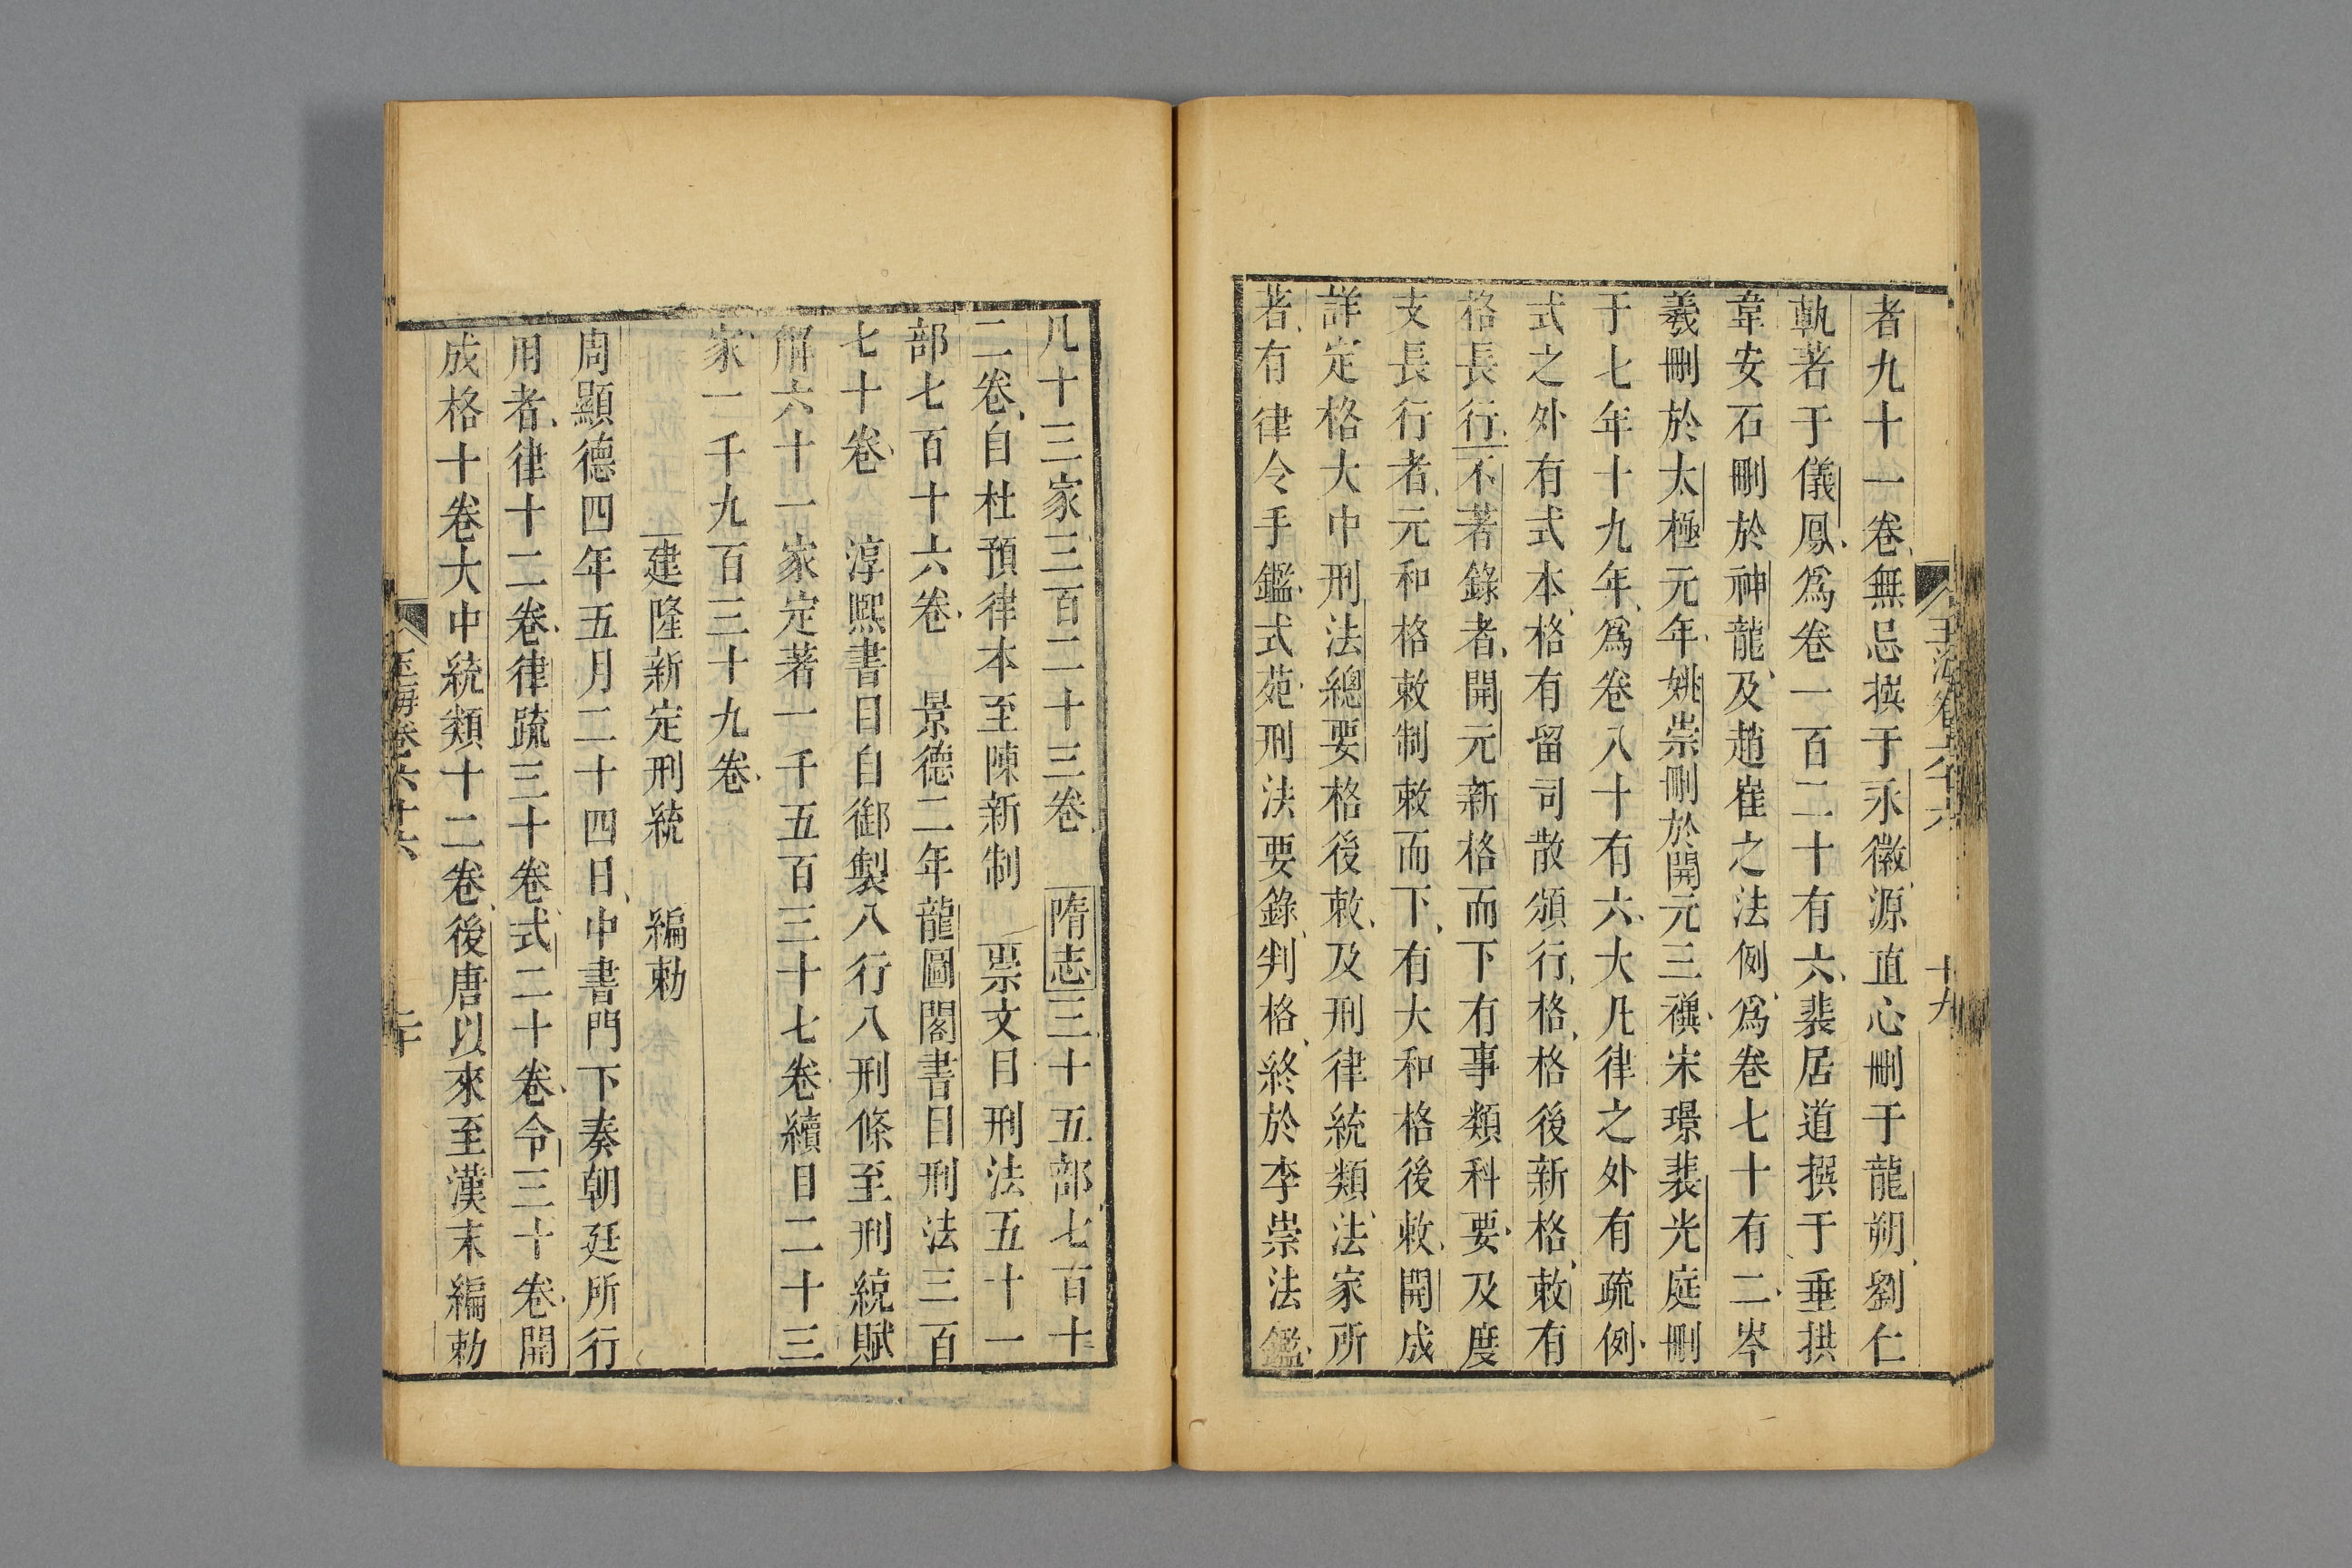 者九十一卷無忌撰于永徽源直心刪于龍朔劉仁
軌著于儀鳳爲卷一百二十有六裴居道撰于垂拱
韋安石刪於神龍及趙崔之法例爲卷七十有二岑
羲刪於太極元年姚崇刪於開元三禩宋璟裴光庭刪
于七年十九年爲卷八十有六大凡律之外有疏例
式之外有式本格有留司散頒行格格後新格敕有
格長行不著錄者開元新格而下有事類科要及度
支長行者元和格敕制敕而下有大和格後敕開成
詳定格大中刑法總要格後敕及刑律統類法家所
著有律令手鑑式苑刑法要錄判格終於李崇法鑑
凡十三家三百二十三卷 隋志三十五部七百十
二卷自杜預律本至陳新制 崇文目刑法五十一
部七百十六卷 景德二年龍圖閣書目刑法三百
七十卷 淳熙書目自御製八行八刑條至刑統賦
解六十一家定著一千五百三十七卷續目二十三
家一千九百三十九卷
建隆新定刑統 編勅
周顯德四年五月二十四日中書門下奏朝廷所行
用者律十二卷律疏三十卷式二十卷令三十卷開
成格十卷大中統類十二卷後唐以來至漢末編勅
玉海卷六十六
二十